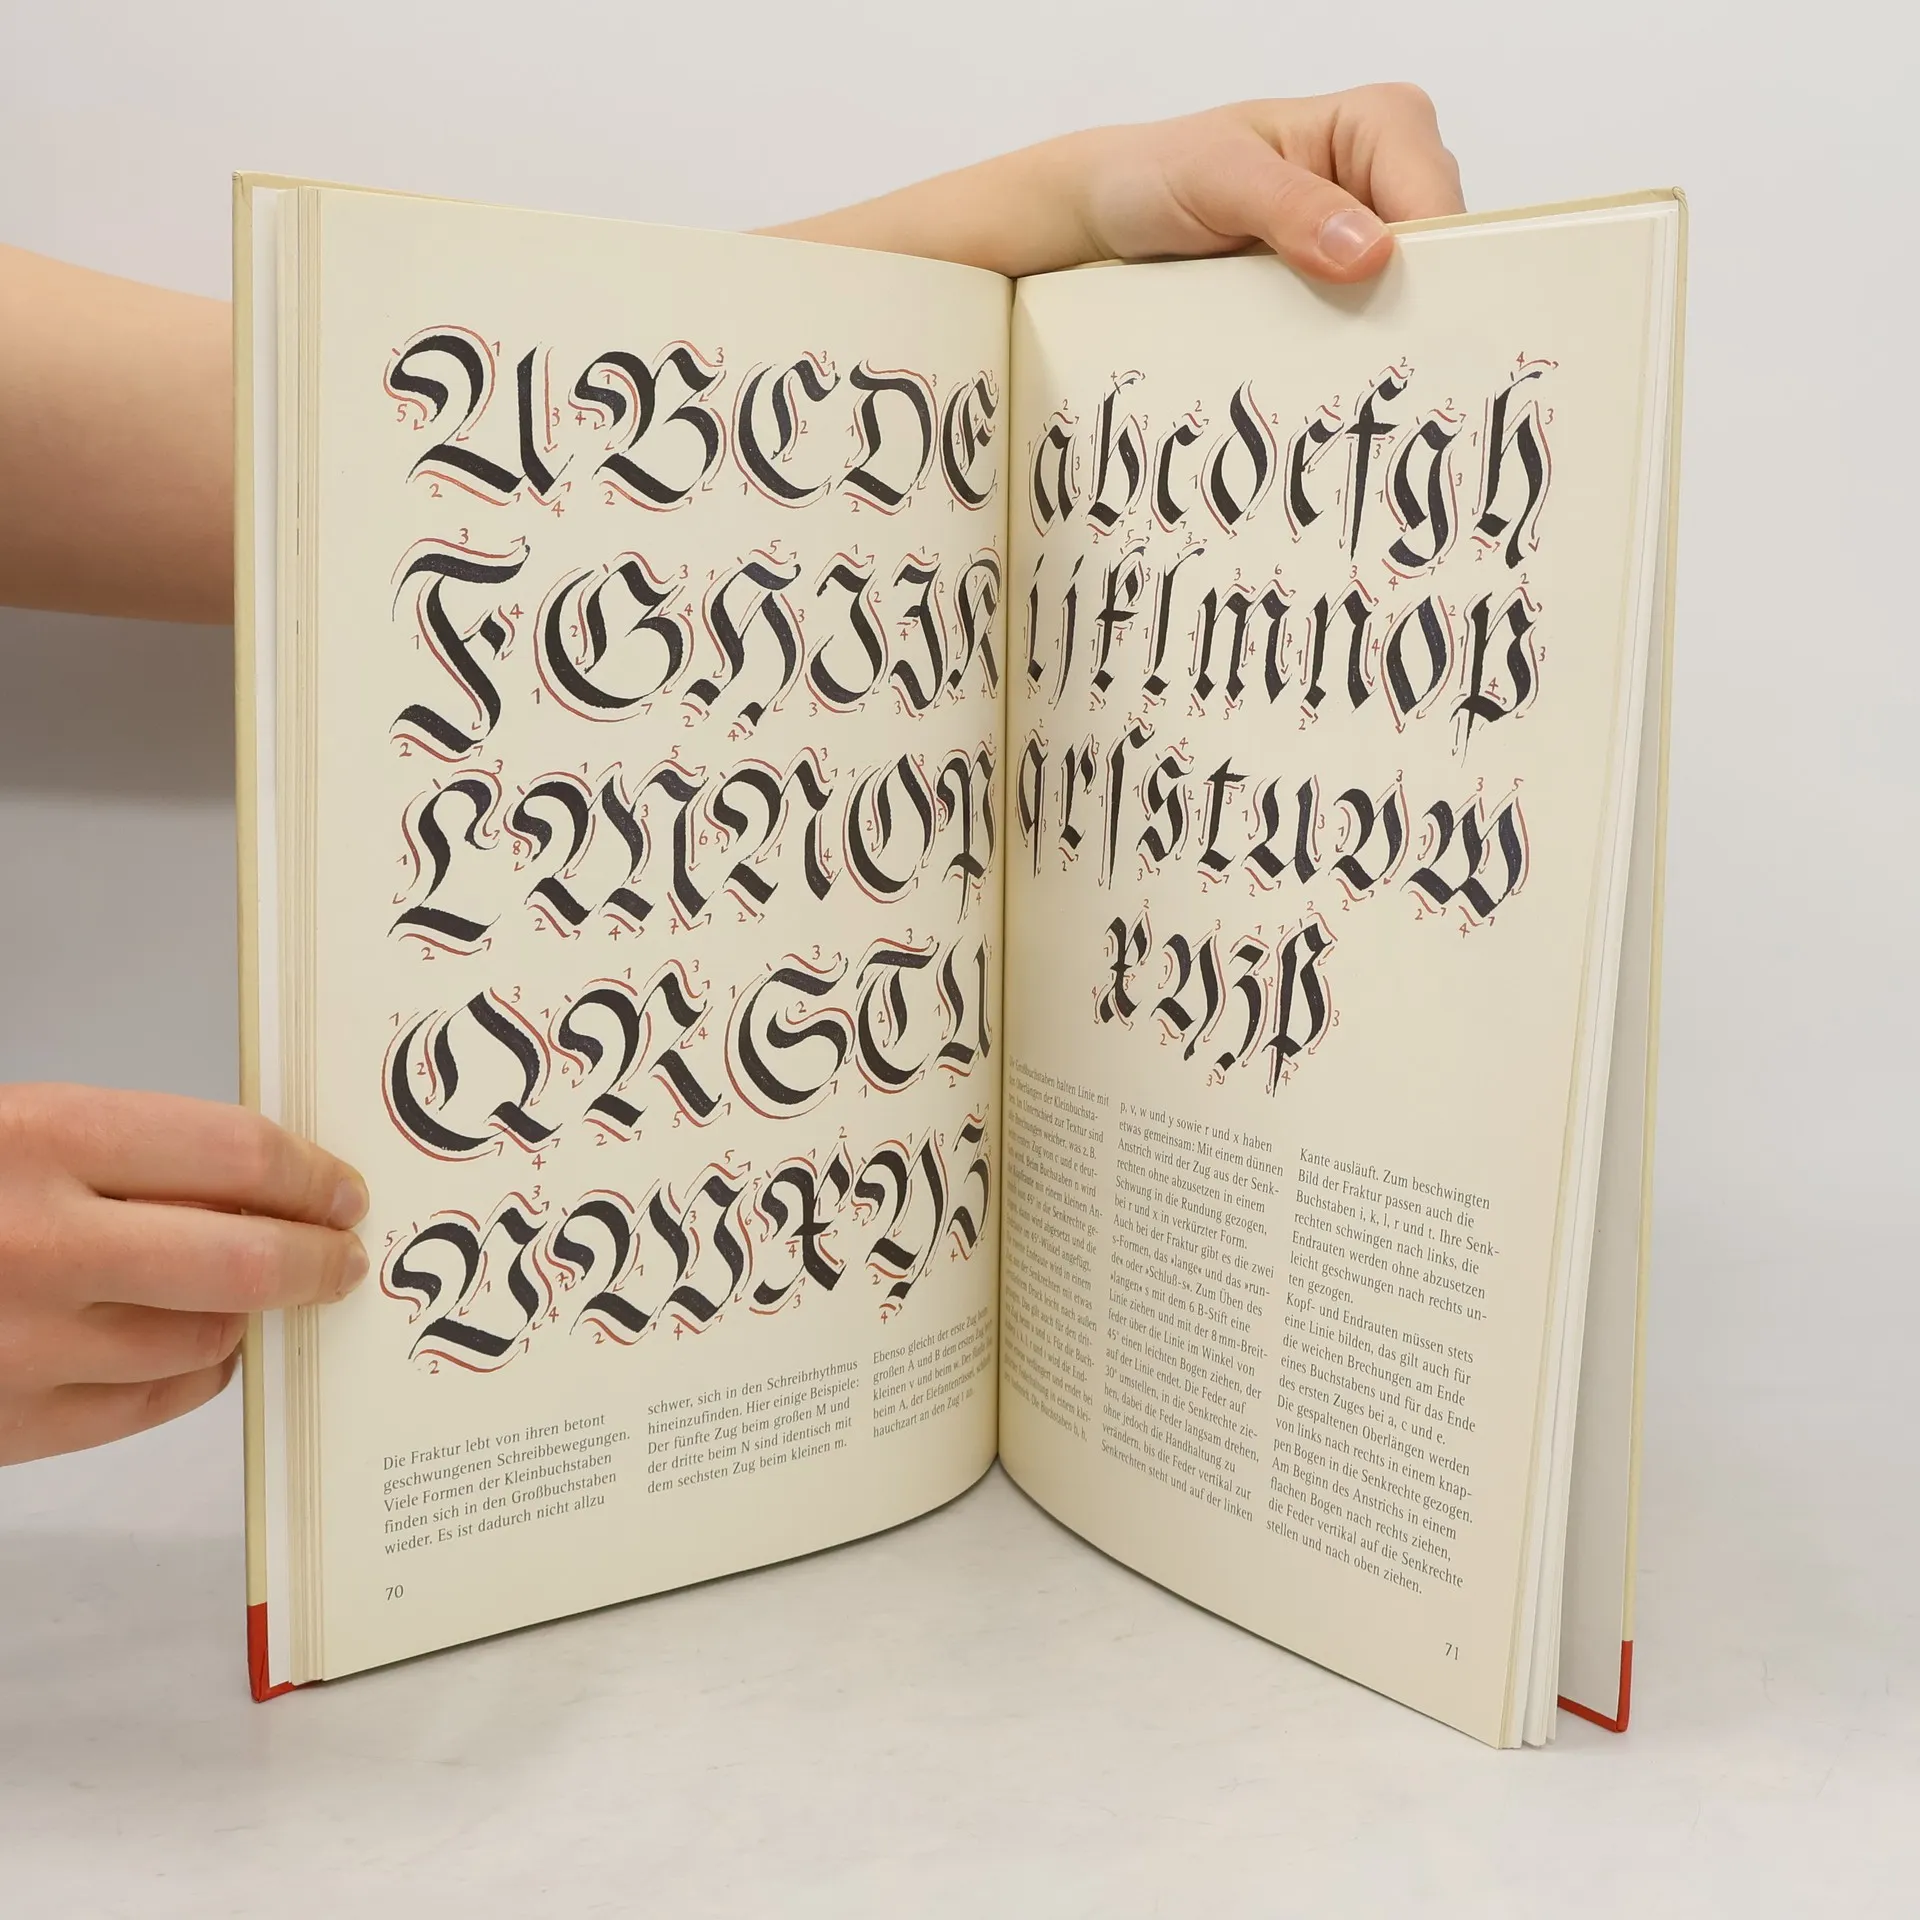 A B C D E
F G H I J K
L M N O P
Q R S T U
V W X Y Z
Die Fraktur lebt von ihren betont
geschwungenen Schreibbewegungen.
Viele Formen der Kleinbuchstaben
finden sich in den Großbuchstaben
wieder. Es ist dadurch nicht allzu
schwer, sich in den Schreibrhythmus
hineinzufinden. Hier einige Beispiele:
Der fünfte Zug beim großen M und
der dritte beim N sind identisch mit
dem sechsten Zug beim kleinen m.
Ebenso gleicht der erste Zug beim
großen A und B dem ersten Zug beim
kleinen v und beim w. Der fünfte Zug
beim A, der Elefantenrüssel, schließt
hauchzart an den Zug 1 an.
70
a b c d e f g h
i j k l m n o p
q r ſ s t u v w
x y z ß
Die Großbuchstaben halten Linie mit
den Oberlängen der Kleinbuchsta-
ben. Im Unterschied zur Textur sind
die Brechungen weicher, was z. B.
beim ersten Zug von c und e deut-
lich wird. Beim Buchstaben n wird
die Kopfraute mit einem kleinen An-
45° in die Senkrechte ge-
zogen, dann wird abgesetzt und die
Endraute im 45°-Winkel angefügt.
Die zweite Endraute wird in einem
Zug aus der Senkrechten mit etwas
Druck leicht nach außen
gezogen. Das gilt auch für den drit-
ten Zug beim m und u. Für die Buch-
staben i, k, l, r und t wird die End-
etwas verlängert und endet bei
in einem klei-
Die Buchstaben b, h,
p, v, w und y sowie r und x haben
etwas gemeinsam: Mit einem dünnen
Anstrich wird der Zug aus der Senk-
rechten ohne abzusetzen in einem
Schwung in die Rundung gezogen,
bei r und x in verkürzter Form.
Auch bei der Fraktur gibt es die zwei
s-Formen, das »lange« und das »run-
de« oder »Schluß-s«. Zum Üben des
»langen« s mit dem 6 B-Stift eine
Linie ziehen und mit der 8 mm-Breit-
feder über die Linie im Winkel von
45° einen leichten Bogen ziehen, der
auf der Linie endet. Die Feder auf
30° umstellen, in die Senkrechte zie-
hen, dabei die Feder langsam drehen,
ohne jedoch die Handhaltung zu
verändern, bis die Feder vertikal zur
Senkrechten steht und auf der linken
Kante ausläuft. Zum beschwingten
Bild der Fraktur passen auch die
Buchstaben i, k, l, r und t. Ihre Senk-
rechten schwingen nach links, die
Endrauten werden ohne abzusetzen
leicht geschwungen nach rechts un-
ten gezogen.
Kopf- und Endrauten müssen stets
eine Linie bilden, das gilt auch für
die weichen Brechungen am Ende
eines Buchstabens und für das Ende
des ersten Zuges bei a, c und e.
Die gespaltenen Oberlängen werden
von links nach rechts in einem knap-
pen Bogen in die Senkrechte gezogen.
Am Beginn des Anstrichs in einem
flachen Bogen nach rechts ziehen,
die Feder vertikal auf die Senkrechte
stellen und nach oben ziehen.
71